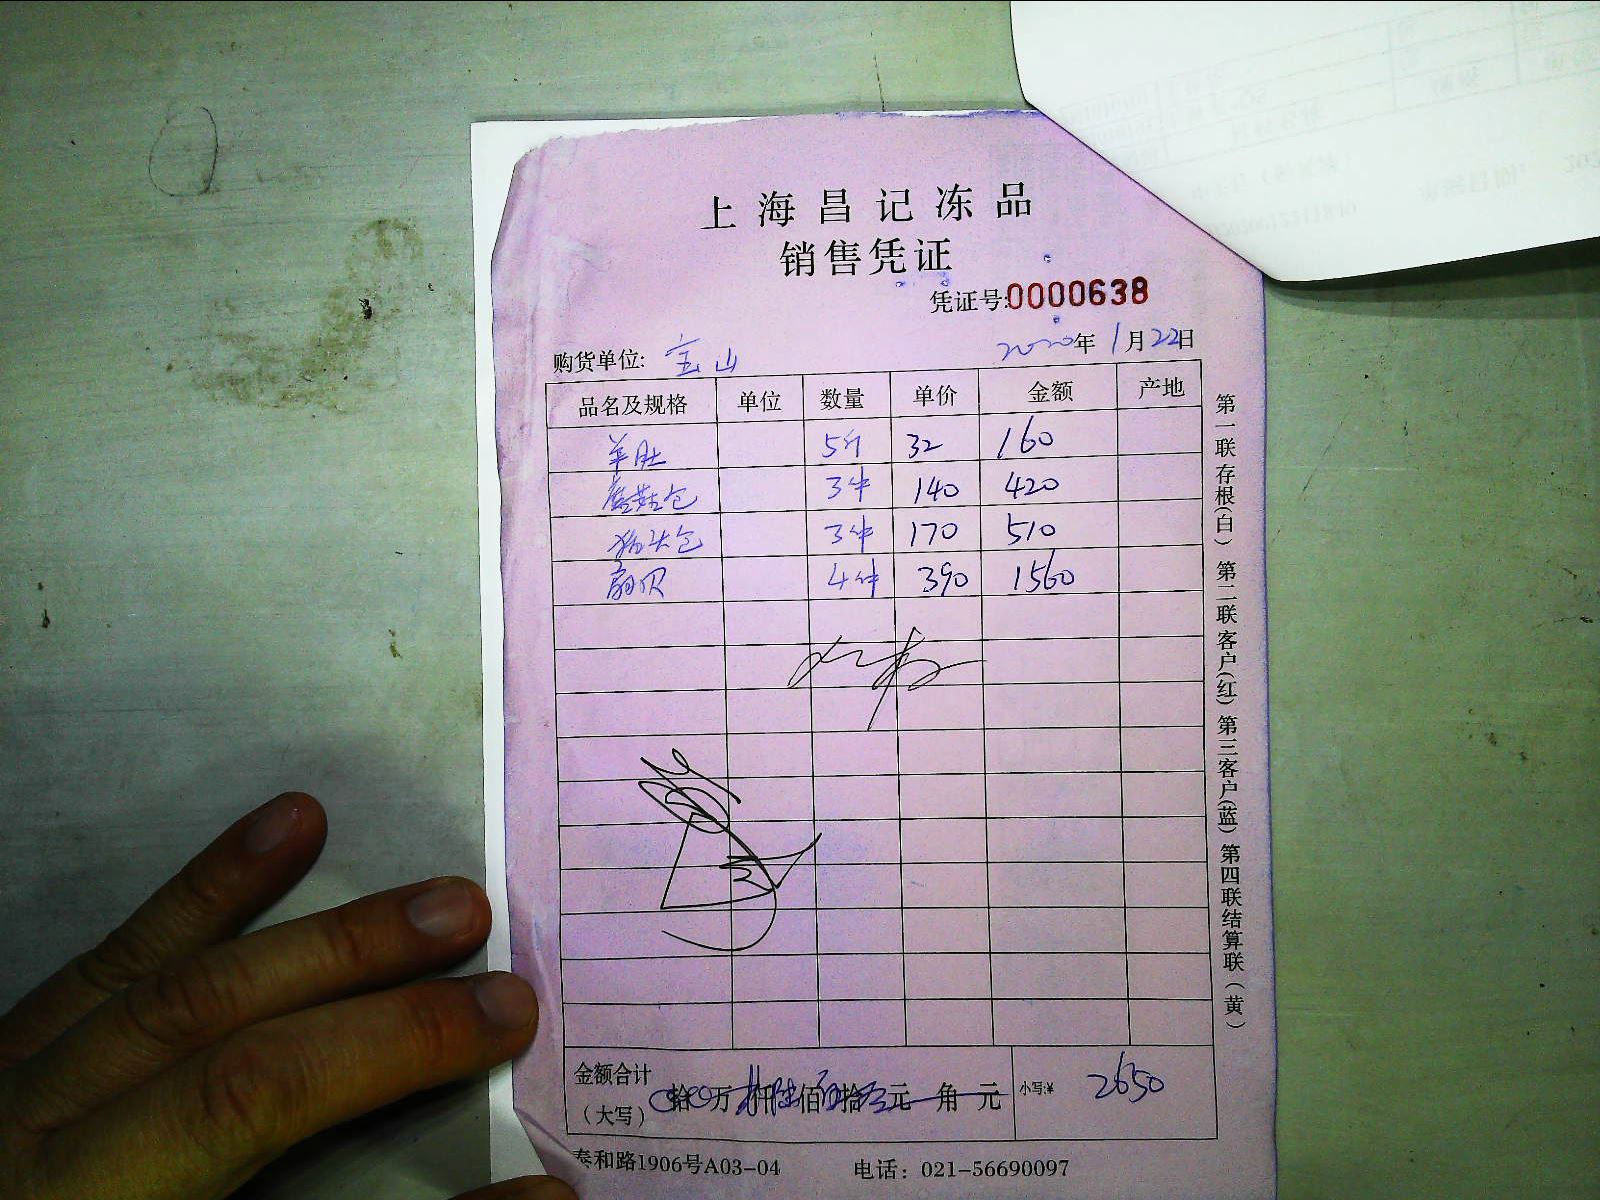 上海昌记冻品
销售凭证
凭证号:0000638
购货单位: 宝山 2020年1月22日
品名及规格 单位 数量 单价 金额 产地
羊肚 5斤 32 160
蘑菇包 3件 140 420
猪头包 3件 170 510
扇贝 4件 390 1560
金额合计
(大写) 拾 万 仟 佰 拾 元 角 元 小写:¥ 2650
泰和路1906号A03-04 电话: 021-56690097
第一联存根(白) 第二联客户(红) 第三客户(蓝) 第四联结算联(黄)